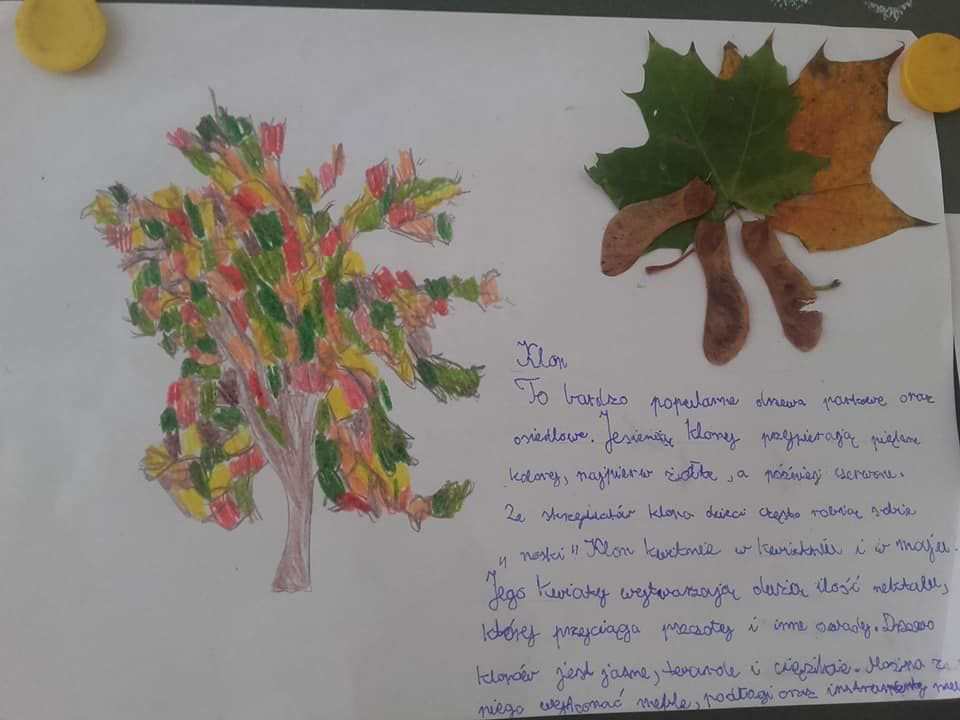 Klon
To bardzo popularne drzewa parkowe oraz
osiedlowe. Jesienią klony przybierają piękne
kolory, najpierw żółte, a później czerwone.
Ze skrzydlatów klona dzieci często robią sobie
"noski" Klon kwitnie w kwietniu i w maju.
Jego kwiaty wytwarzają dużą ilość nektaru,
który przyciąga pszczoły i inne owady. Drzewo
klonów jest jasne, twarde i ciężkie. Można z
niego wykonać meble, podłogi oraz instrumenty